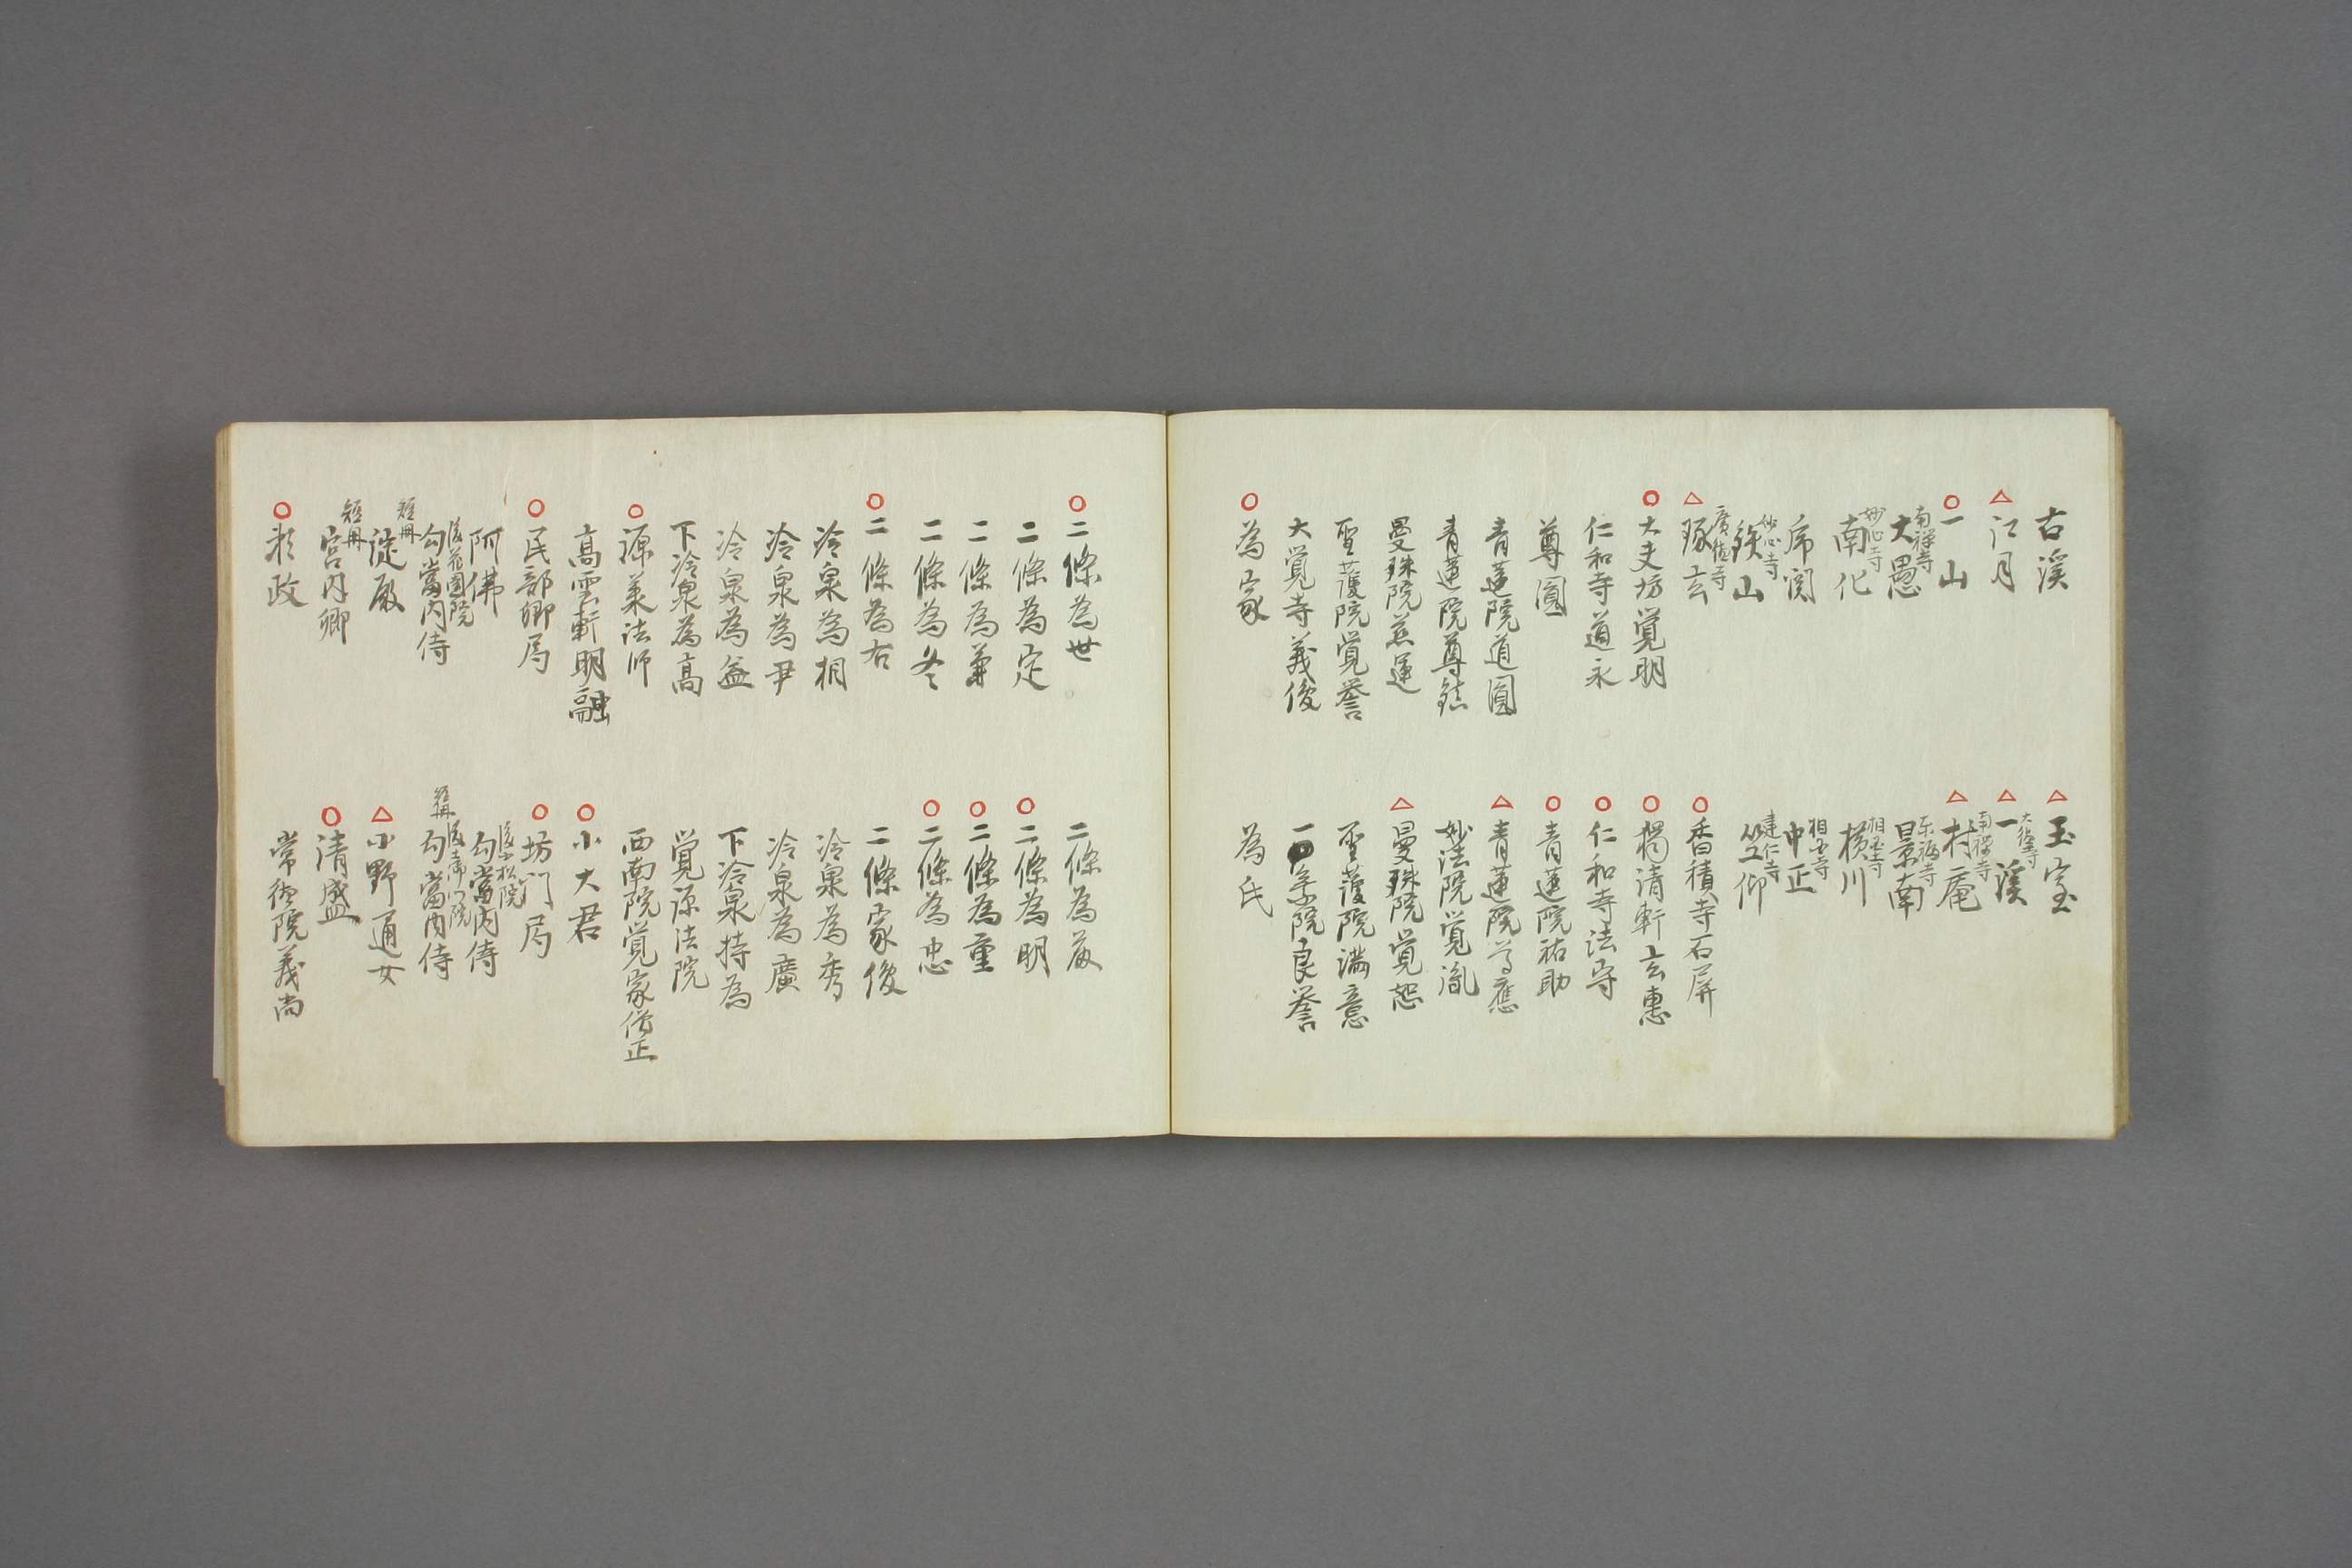 古溪
△江月
○一山
南禅寺 大愚
妙心寺 南化
席関
妙心寺 鉄山
△廣徳寺 琢玄
○大夫坊覚明
仁和寺道永
尊圓
青蓮院道圓
青蓮院尊鎮
曼珠院慈運
聖護院覚誉
大覚寺義俊
○為家
△玉室
△大徳寺 一溪
△南禅寺 村庵
東福寺 景南
相国寺 横川
相国寺 中正
建仁寺 笠仰
○香積寺石屏
○獨清軒玄惠
○仁和寺法守
○青蓮院祐助
△青蓮院尊應
妙法院覚胤
△曼珠院覚恕
聖護院満意
一条院良誉
為氏
○二條為世
二條為定
二條為兼
二條為冬
○二條為右
冷泉為相
冷泉為尹
冷泉為益
下冷泉為高
○源承法师
高雲軒明融
○民部卿局
阿佛
後花園院 勾當内侍
短冊 淀殿
短冊 宮内卿
○頼政
二條為藤
○二條為明
○二條為重
○二條為忠
二條家俊
冷泉為秀
冷泉為廣
下冷泉持為
覚源法院
西南院覚家僧正
○小大君
○坊門局
後小松院 勾當内侍
短冊 後土御门院 勾當内侍
△小野通女
○清盛
常徳院義尚